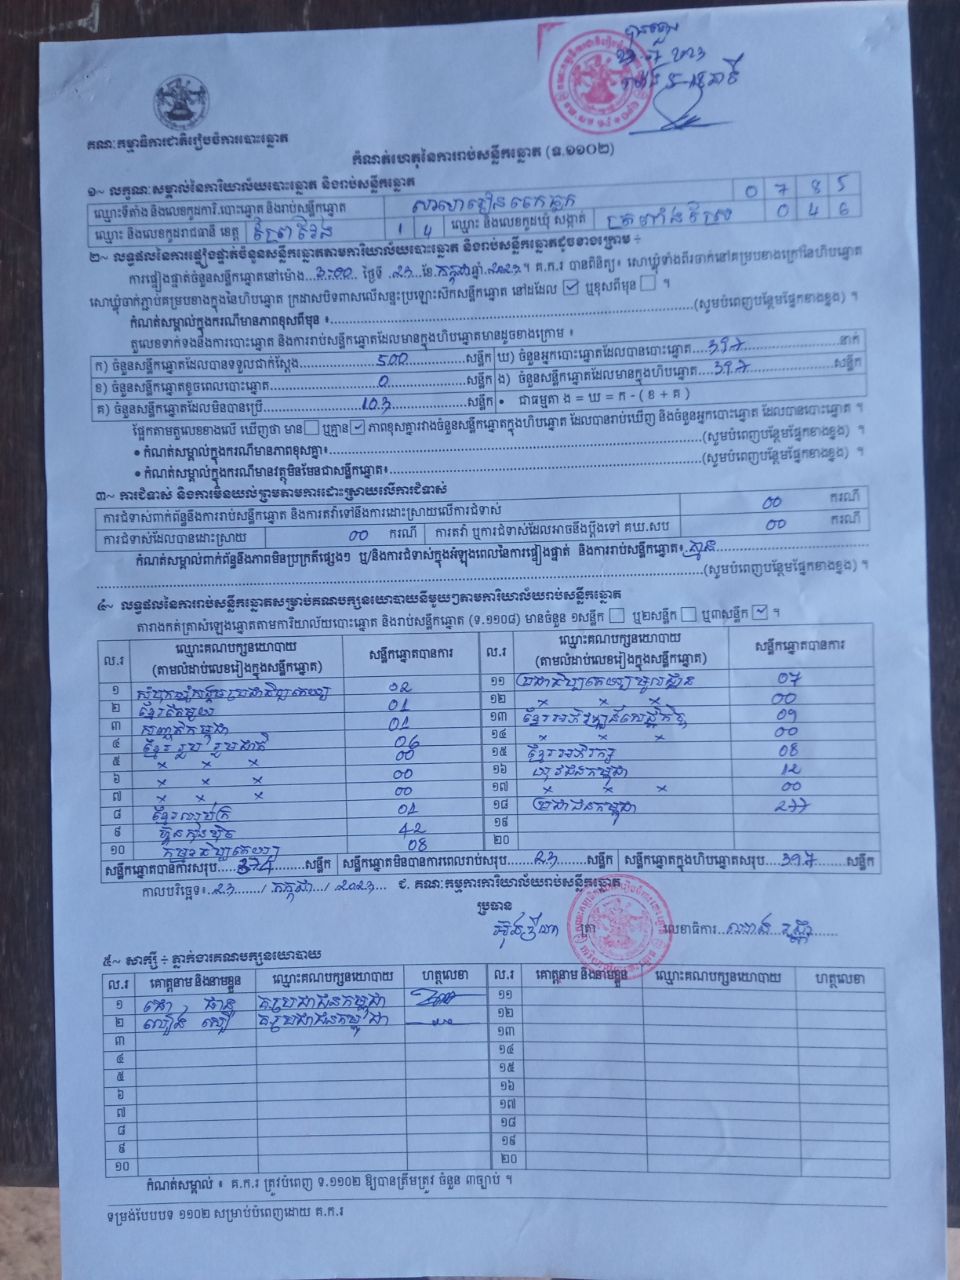 គណៈកម្មាធិការជាតិរៀបចំការបោះឆ្នោត
កំណត់ហេតុនៃការរាប់សន្លឹកឆ្នោត (ទ.១១០២)
១~ លក្ខណៈសម្គាល់នៃការិយាល័យបោះឆ្នោត និងរាប់សន្លឹកឆ្នោត
ឈ្មោះទីតាំង និងលេខកូដការិ.បោះឆ្នោត និងរាប់សន្លឹកឆ្នោត 0 7 8 5
ឈ្មោះ និងលេខកូដរាជធានី ខេត្ត ព្រៃវែង 1 4 ឈ្មោះ និងលេខកូដឃុំ សង្កាត់ 0 4 6
២~ លទ្ធផលនៃការផ្ទៀងផ្ទាត់ចំនួនសន្លឹកឆ្នោតតាមការិយាល័យបោះឆ្នោត និងរាប់សន្លឹកឆ្នោតដូចខាងក្រោម ÷
ការផ្ទៀងផ្ទាត់ចំនួនសន្លឹកឆ្នោតនៅម៉ោង 3:00 ថ្ងៃទី 23 ខែ កក្កដា ឆ្នាំ 2023 ។ គ.ក.រ បានពិនិត្យ៖ សោឃ្លុំទាំងពីរចាក់នៅគម្របខាងក្រៅនៃហិបឆ្នោត
សោឃ្លុំចាក់ភ្ជាប់គម្របខាងក្នុងនៃហិបឆ្នោត ក្រដាសបិទពាសលើសន្ទះប្រឡោះសឹកសន្លឹកឆ្នោត នៅដដែល ឬខុសពីមុន ។
កំណត់សម្គាល់ក្នុងករណីមានភាពខុសពីមុន ៖ (សូមបំពេញបន្ថែមផ្នែកខាងខ្នង) ។
តួលេខទាក់ទងនឹងការបោះឆ្នោត និងការរាប់សន្លឹកឆ្នោតដែលមានក្នុងហិបឆ្នោតមានដូចខាងក្រោម ៖
ក) ចំនួនសន្លឹកឆ្នោតដែលបានទទួលជាក់ស្តែង 500 សន្លឹក ឃ) ចំនួនអ្នកបោះឆ្នោតដែលបានបោះឆ្នោត 397 នាក់
ខ) ចំនួនសន្លឹកឆ្នោតខូចពេលបោះឆ្នោត 0 សន្លឹក ង) ចំនួនសន្លឹកឆ្នោតដែលមានក្នុងហិបឆ្នោត 397 សន្លឹក
គ) ចំនួនសន្លឹកឆ្នោតដែលមិនបានប្រើ 103 សន្លឹក • ជាធម្មតា ង = ឃ = ក - ( ខ + គ )
ផ្អែកតាមតួលេខខាងលើ ឃើញថា មាន ឬគ្មាន ភាពខុសគ្នារវាងចំនួនសន្លឹកឆ្នោតក្នុងហិបឆ្នោត ដែលបានរាប់ឃើញ និងចំនួនអ្នកបោះឆ្នោត ដែលបានបោះឆ្នោត ។
• កំណត់សម្គាល់ក្នុងករណីមានភាពខុសគ្នា៖ (សូមបំពេញបន្ថែមផ្នែកខាងខ្នង) ។
• កំណត់សម្គាល់ក្នុងករណីមានវត្ថុមិនមែនជាសន្លឹកឆ្នោត៖ (សូមបំពេញបន្ថែមផ្នែកខាងខ្នង) ។
៣~ ការជំទាស់ និងការមិនយល់ព្រមតាមការដោះស្រាយលើការជំទាស់
ការជំទាស់ពាក់ព័ន្ធនឹងការរាប់សន្លឹកឆ្នោត និងការតវ៉ាទៅនឹងការដោះស្រាយលើការជំទាស់ 00 ករណី
ការជំទាស់ដែលបានដោះស្រាយ 00 ករណី ការតវ៉ា ឬការជំទាស់ដែលអាចនឹងប្តឹងទៅ គឃ.សប 00 ករណី
កំណត់សម្គាល់ពាក់ព័ន្ធនឹងភាពមិនប្រក្រតីផ្សេងៗ ឬ/និងការជំទាស់ក្នុងអំឡុងពេលនៃការផ្ទៀងផ្ទាត់ និងការរាប់សន្លឹកឆ្នោត៖ គ្មាន
(សូមបំពេញបន្ថែមផ្នែកខាងខ្នង) ។
៤~ លទ្ធផលនៃការរាប់សន្លឹកឆ្នោតសម្រាប់គណបក្សនយោបាយនីមួយៗតាមការិយាល័យរាប់សន្លឹកឆ្នោត
តារាងកត់ត្រាសំឡេងឆ្នោតតាមការិយាល័យបោះឆ្នោត និងរាប់សន្លឹកឆ្នោត (ទ.១១០៨) មានចំនួន ១សន្លឹក ឬ២សន្លឹក ឬ៣សន្លឹក ។
ល.រ ឈ្មោះគណបក្សនយោបាយ (តាមលំដាប់លេខរៀងក្នុងសន្លឹកឆ្នោត) សន្លឹកឆ្នោតបានការ ល.រ ឈ្មោះគណបក្សនយោបាយ (តាមលំដាប់លេខរៀងក្នុងសន្លឹកឆ្នោត) សន្លឹកឆ្នោតបានការ
១ 02 ១១ 07
២ ខ្មែរតែមួយ 01 ១២ × × × 00
៣ កម្ពុជា 01 ១៣ ខ្មែរអភិវឌ្ឍន៍សេដ្ឋកិច្ច 09
៤ ខ្មែររួបរួមជាតិ 06 ១៤ × × 00
៥ × × × 00 ១៥ ខ្មែរអភិរក្ស 08
៦ × × × 00 ១៦ កម្ពុជា 12
៧ × × × 00 ១៧ × × × 00
៨ 01 ១៨ ប្រជាជនកម្ពុជា 277
៩ ហ៊្វុនស៊ិនប៉ិច 42 ១៩
១០ 08 ២០
សន្លឹកឆ្នោតបានការសរុប 374 សន្លឹក សន្លឹកឆ្នោតមិនបានការពេលរាប់សរុប 23 សន្លឹក សន្លឹកឆ្នោតក្នុងហិបឆ្នោតសរុប 397 សន្លឹក
កាលបរិច្ឆេទ៖ 23 / កក្កដា / 2023 ជ. គណៈកម្មការការិយាល័យរាប់សន្លឹកឆ្នោត
ប្រធាន
លេខាធិការ
៥~ សាក្សី ÷ ភ្នាក់ងារគណបក្សនយោបាយ
ល.រ គោត្តនាម និងនាមខ្លួន ឈ្មោះគណបក្សនយោបាយ ហត្ថលេខា ល.រ គោត្តនាម និងនាមខ្លួន ឈ្មោះគណបក្សនយោបាយ ហត្ថលេខា
១ គ.ប្រជាជនកម្ពុជា ១១
២ គ.ប្រជាជនកម្ពុជា ១២
៣ ១៣
៤ ១៤
៥ ១៥
៦ ១៦
៧ ១៧
៨ ១៨
៩ ១៩
១០ ២០
កំណត់សម្គាល់ ៖ គ.ក.រ ត្រូវបំពេញ ទ.១១០២ ឱ្យបានត្រឹមត្រូវ ចំនួន ៣ច្បាប់ ។
ទម្រង់បែបបទ ១១០២ សម្រាប់បំពេញដោយ គ.ក.រ